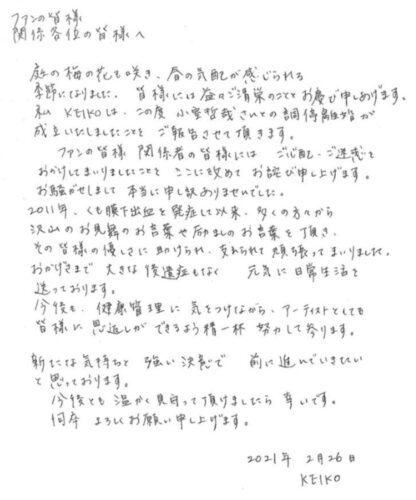 ファンの皆様
関係各位の皆様へ
庭の梅の花も咲き、春の気配が感じられる
季節になりました。皆様には益々ご清栄のこととお慶び申しあげます。
私 KEIKOは、この度 小室哲哉さんとの調停離婚が
成立いたしましたことを ご報告させて頂きます。
ファンの皆様 関係者の皆様には ご心配・ご迷惑を
おかけしてまいりましたこと ここに改めて お詫び申し上げます。
お騒がせしまして 本当に申し訳ありませんでした。
2011年、くも膜下出血を発症して以来、多くの方々から
沢山のお見舞のお言葉や励ましのお言葉を頂き、
その皆様の優しさに助けられ、支えられて 頑張ってまいりました。
おかげさまで 大きな後遺症もなく 元気に日常生活を
送っております。
今後も、健康管理に気をつけながら、アーティストとしても
皆様に恩返しができるよう精一杯 努力して参ります。
新たな気持ちと 強い決意で 前に進んでいきたい
と思っております。
今後とも 温かく見守って頂けましたら 幸いです。
何卒 よろしくお願い申し上げます。
2021年 2月26日
KEIKO